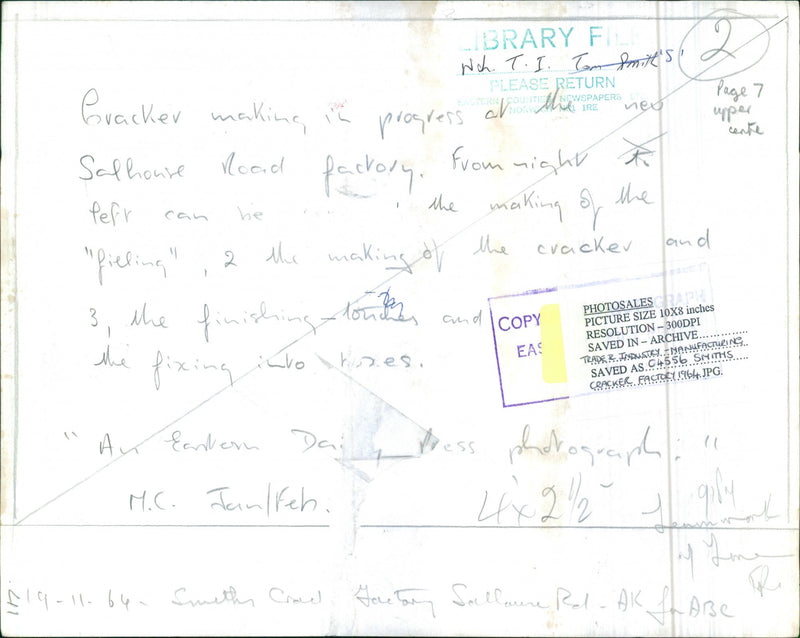 LIBRARY FILE
Nch. T. I. Tom Smith's
PLEASE RETURN
EASTERN COUNTIES NEWSPAPERS
2
Page 7
upper
centre
Cracker making in progress at the new
Salhouse Road factory. From right to
left can be the making of the
"filling", 2 the making of the cracker and
3, the finishing - touches and
the fixing into boxes.
COPY
EAS
PHOTOSALES
PICTURE SIZE 10X8 inches
RESOLUTION – 300DPI
SAVED IN – ARCHIVE
TRADE & INDUSTRY - MANUFACTURING
SAVED AS 04556 SMITHS
CRACKER FACTORY 1964.JPG.
"An Eastern Daily Press photograph."
M.C. Jan/Feb.
4 x 2 1/2
19-11-64 - Smiths Crac Factory Salhouse Rd - AK for ABC